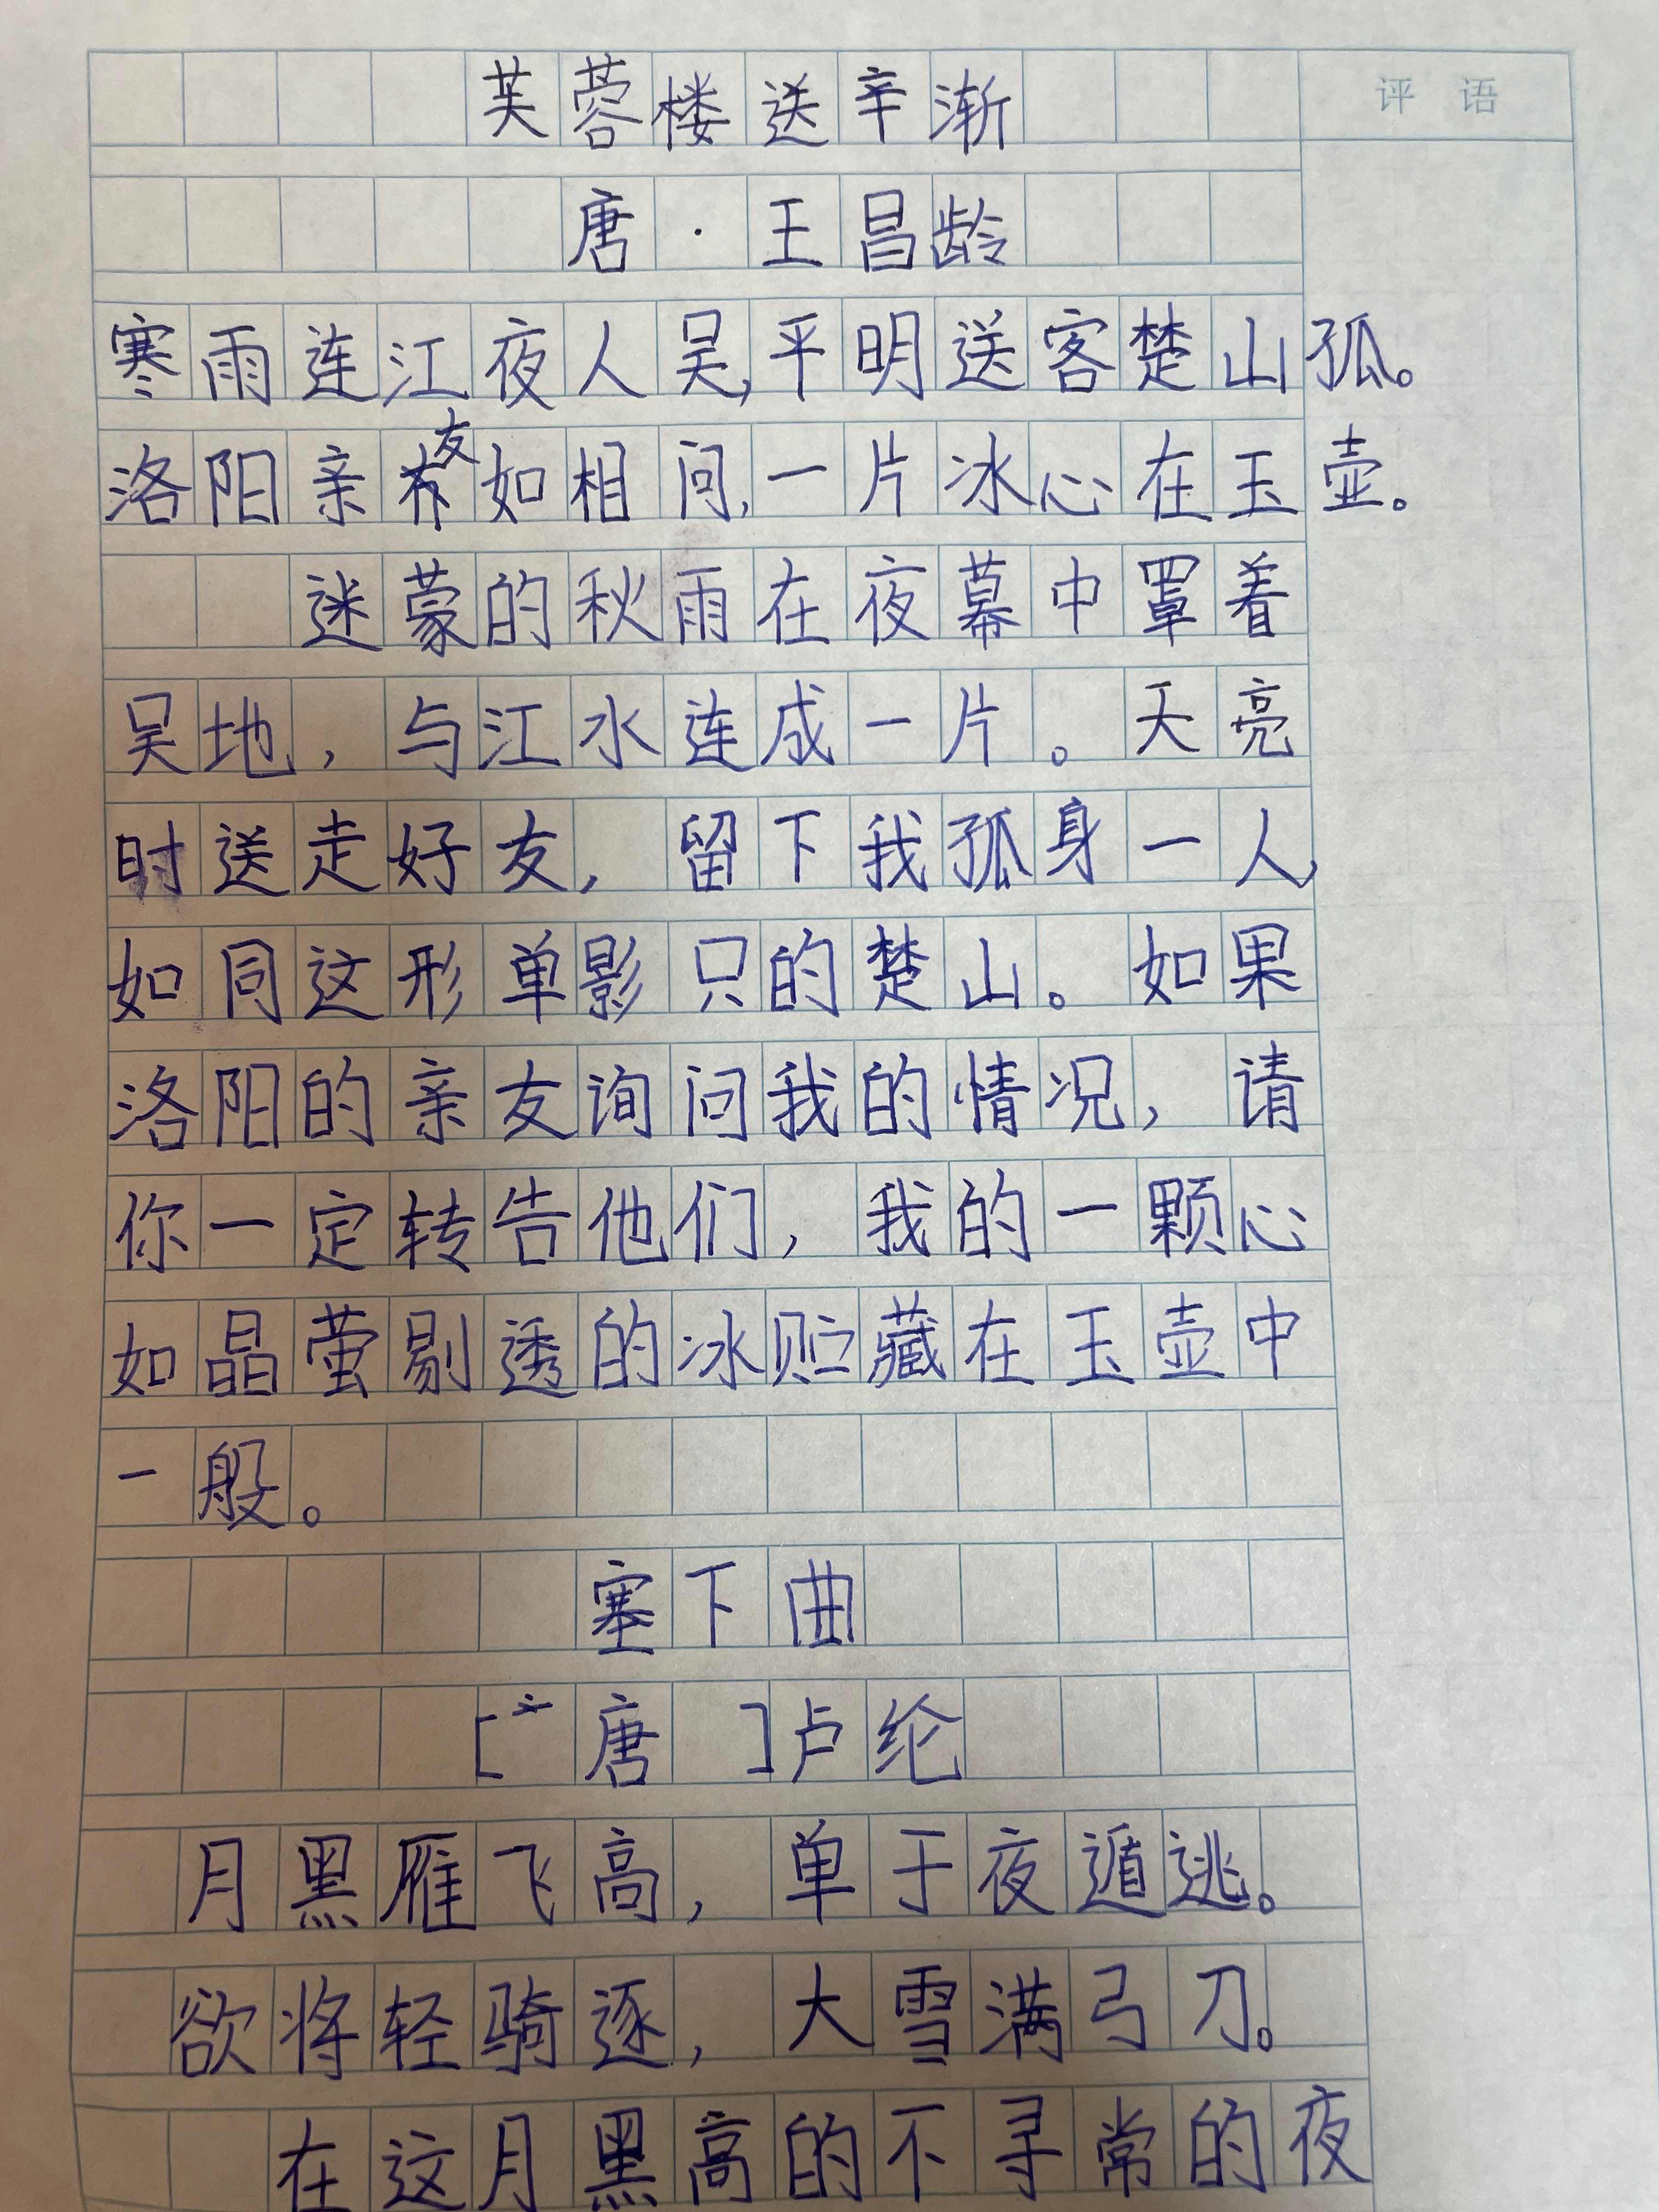 芙蓉楼送辛渐
评语
唐·王昌龄
寒雨连江夜人吴,平明送客楚山孤。
洛阳亲友如相问,一片冰心在玉壶。
迷蒙的秋雨在夜幕中罩着
吴地,与江水连成一片。天亮
时送走好友,留下我孤身一人,
如同这形单影只的楚山。如果
洛阳的亲友询问我的情况,请
你一定转告他们,我的一颗心
如晶萤剔透的冰贮藏在玉壶中
一般。
塞下曲
[唐]卢纶
月黑雁飞高,单于夜遁逃。
欲将轻骑逐,大雪满弓刀。
在这月黑高的不寻常的夜